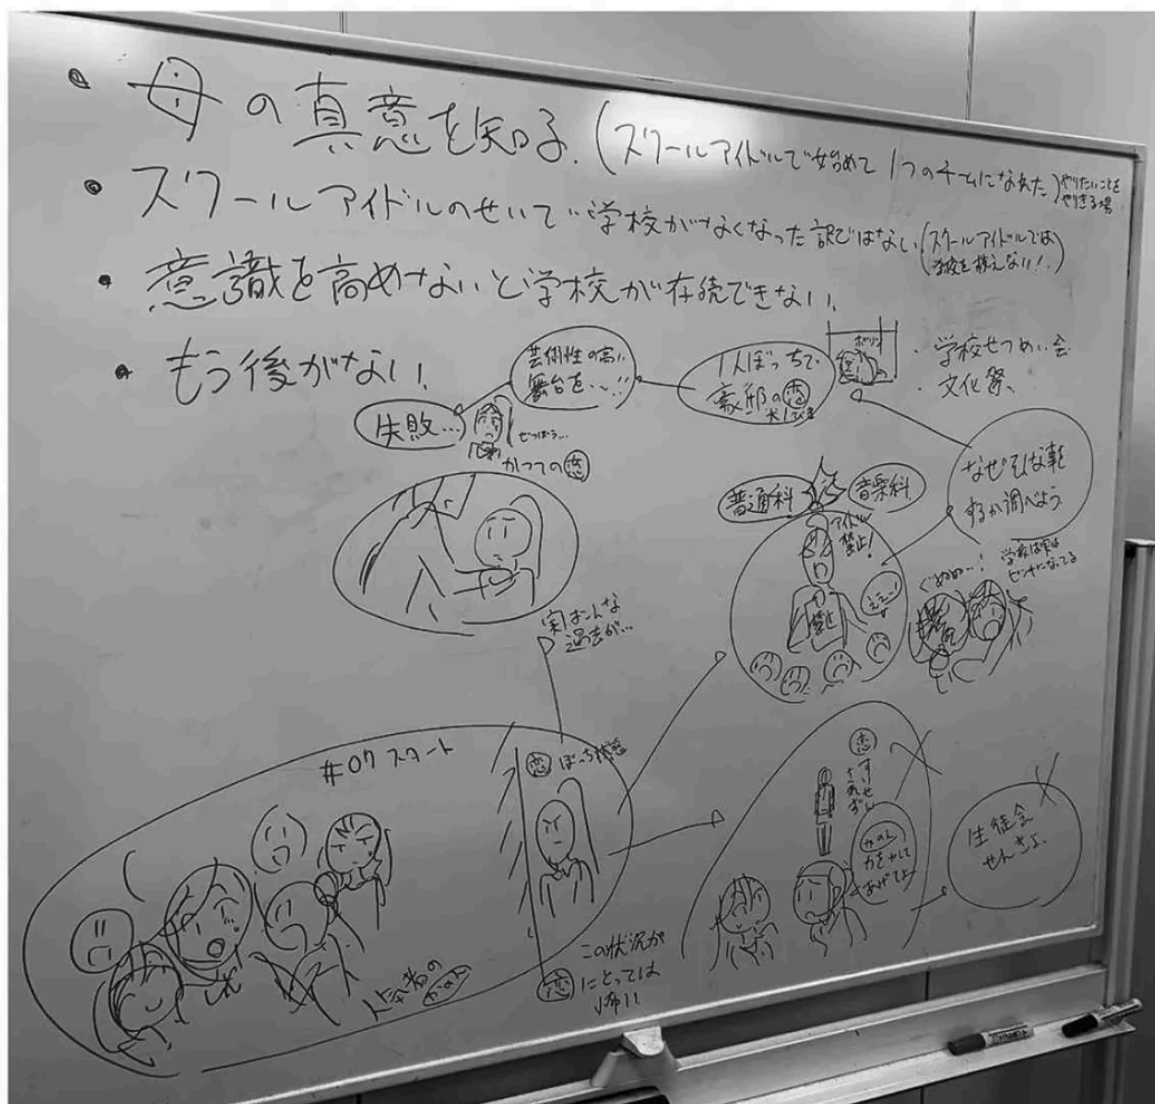 ・母の真意を知る.(スクールアイドルで始めて1つのチームになれた)やりたいことをやりきる場
・スクールアイドルのせいで学校がなくなった訳ではない(スクールアイドルでは学校を救えない!.)
・意識を高めないと学校が存続できない.
・もう後がない.
・学校せつめい会
・文化祭.
失敗...
芸術性の高い
舞台を...!!
1人ぼっちで
豪邸の恋
ポツリ
ぜつぼう...
かつての恋
なぜそんな事を
するか調べよう.
普通科
音楽科
アイドル
禁止!
禁止
ええー!
ぐぬぬ...!
学校は実は
ピンチになってる
実はこんな
過去が...
#07 スタート
恋 ぼっち
人気者の
かのん
この状況が
恋 にとっては
怖い
恋
すいせん
されず
かのん
力をかして
あげてよ
生徒会
せんきょ.